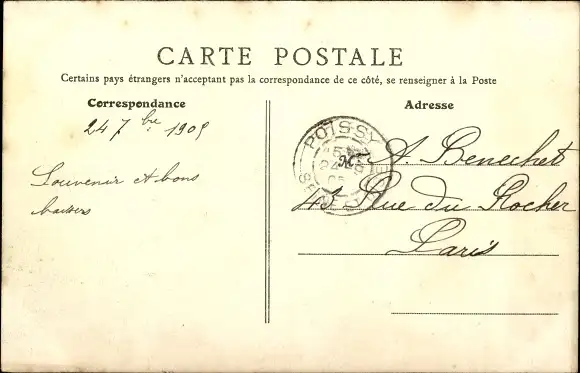 CARTE POSTALE
Certains pays étrangers n'acceptant pas la correspondance de ce côté, se renseigner à la Poste
Correspondance
24 7bre 1905
Souvenir et bons
baisers
Adresse
POISSY
Mr A. Benechet
45 Rue du Rocher
Paris